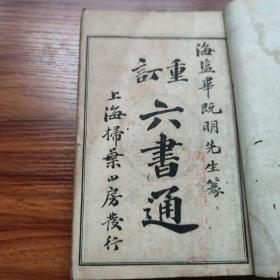 海盐畢既明先生篆
重訂
六書通
上海掃葉山房發行